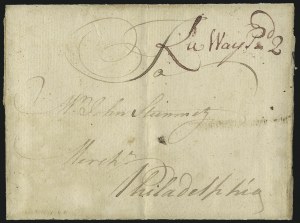 Way Pd 2
Mr John Stinmetz
Mercht
Philadelphia